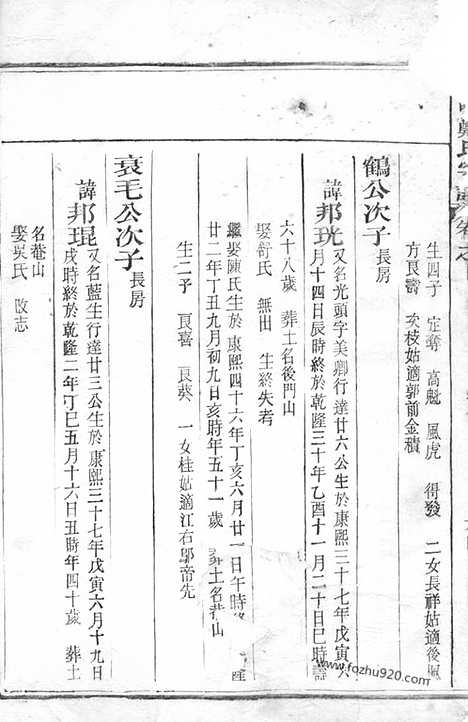 鄭氏宗譜卷之
生四子 定奪 高魁 風虎 得發 二女長祥姑適後
方良壽 次枝姑適郭前金積
鶴公次子長房
諱邦珖又名光頭字美卿行達廿六公生於康熙三十七年戊寅六
月十四日辰時終於乾隆三十年乙酉十一月二十日巳時壽
六十八歲 葬土名後門山
娶舒氏 無出 生終失考
繼娶陳氏生於康熙四十六年丁亥六月廿一日午時
廿二年丁丑九月初九日亥時年五十一歲 葬土名巷山
生二子 良喜 良葵 一女桂姑適江右鄔帝先
袞毛公次子長房
諱邦琨又名藍生行達廿三公生於康熙三十七年戊寅六月十九日
戌時終於乾隆二年丁巳五月十六日丑時年四十歲 葬土
名巷山
娶吳氏 改志
www.fozhu920.com